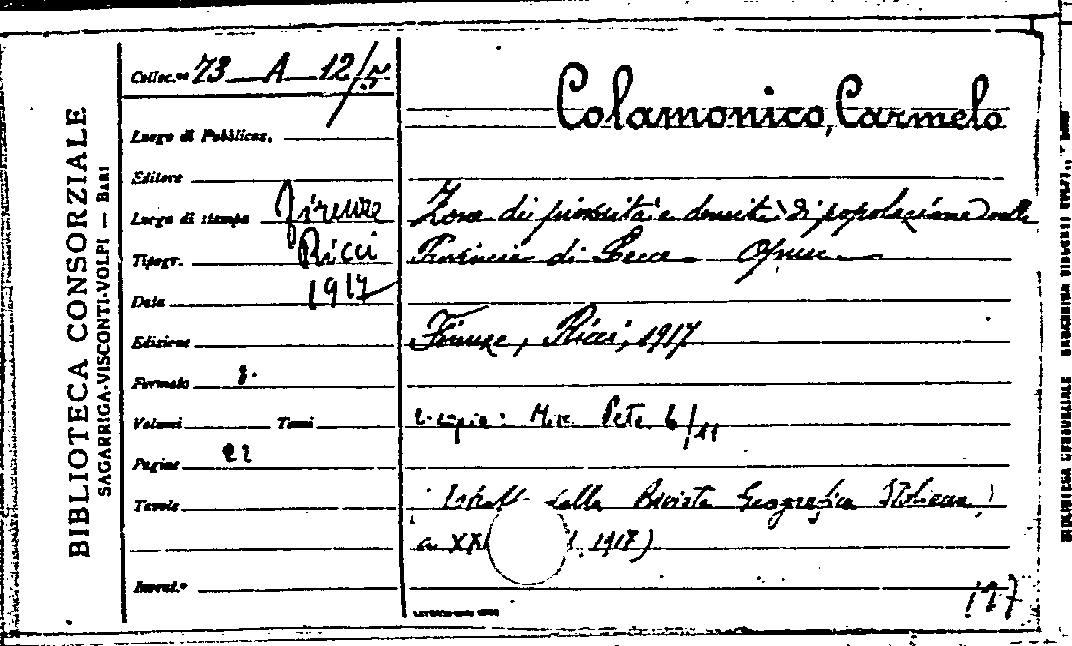 BIBLIOTECA CONSORZIALE
SAGARRIGA-VISCONTI-VOLPI — BARI
Colloc.ne 73 A 12/5
Luogo di Pubblicaz.
Editore
Luogo di stampa Firenze
Tipogr. Ricci
Data 1917
Edizione
Formato 8°
Volumi Tomi
Pagine 22
Tavole
Invent.°
Colamonico, Carmelo
Zone di piovosità e densità di popolazione nella
Provincia di Lecce Opusc.
Firenze, Ricci, 1917
2a copia: Mix. Petr. 6/11
(Estratt dalla Rivista Geografica Italiana,
a XXI 1917)
127